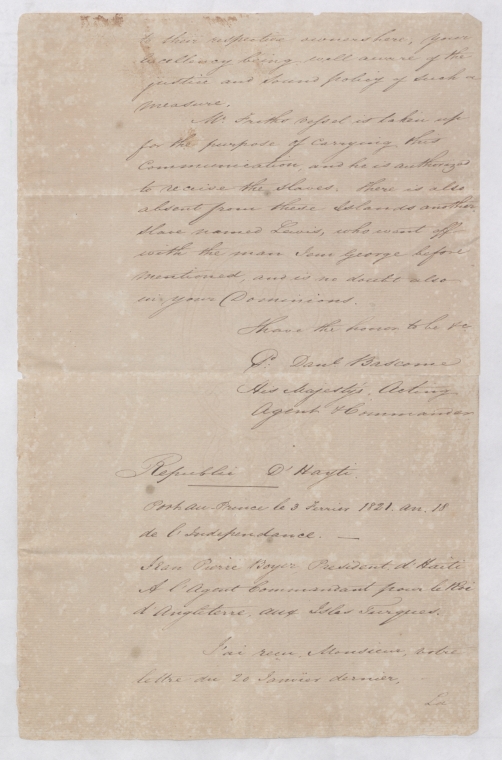 to their respective owners here, your
Excellency being well aware of the
justice and sound policy of such a
measure.
Mr Friths vessel is taken up
for the purpose of carrying this
Communication and he is authorized
to receive the Slaves. There is also
absent from these Islands another
Slave named Lewis, who went off
with the man Jem George before
mentioned, and is no doubt also
in your Dominions.
I have the honor to be &c
Danl Bascome
His Majesty's Acting
Agent & Commander
Republic D'Hayti.
Port au Prince le 3 Fevrier 1821. an. 18
de l'Independance. —
Jean Pierre Boyer President d'Haiti
A l'Agent Commandant pour le Roi
d'Angleterre, aux Isles Turques.
J'ai reçu, Monsieur, votre
lettre du 20 Janvier dernier,
La